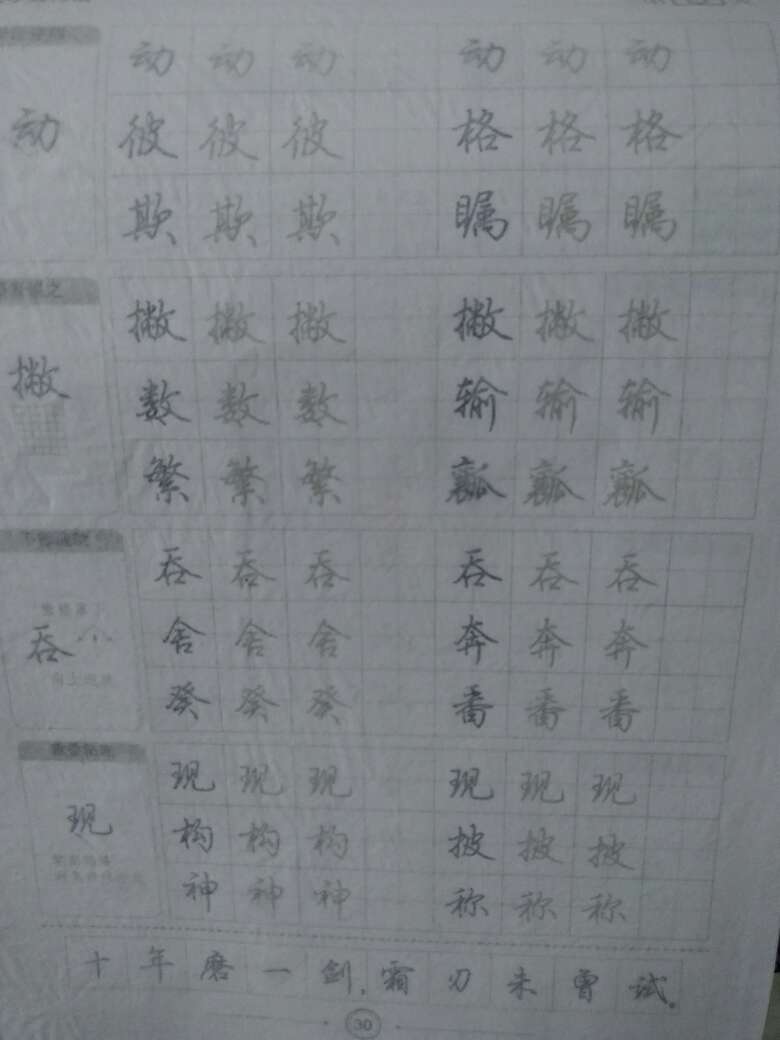 动 动 动 动 动 动
动
彼 彼 彼 格 格 格
欺 欺 欺 瞩 瞩 瞩
撇 撇 撇 撇 撇 撇
撇
数 数 数 输 输 输
繁 繁 繁 瓤 瓤 瓤
吞 吞 吞 吞 吞 吞
吞
舍 舍 舍 奔 奔 奔
癸 癸 癸 番 番 番
现 现 现 现 现 现
现
构 构 构 披 披 披
神 神 神 称 称 称
十年磨一剑，霜刃未曾试。
30